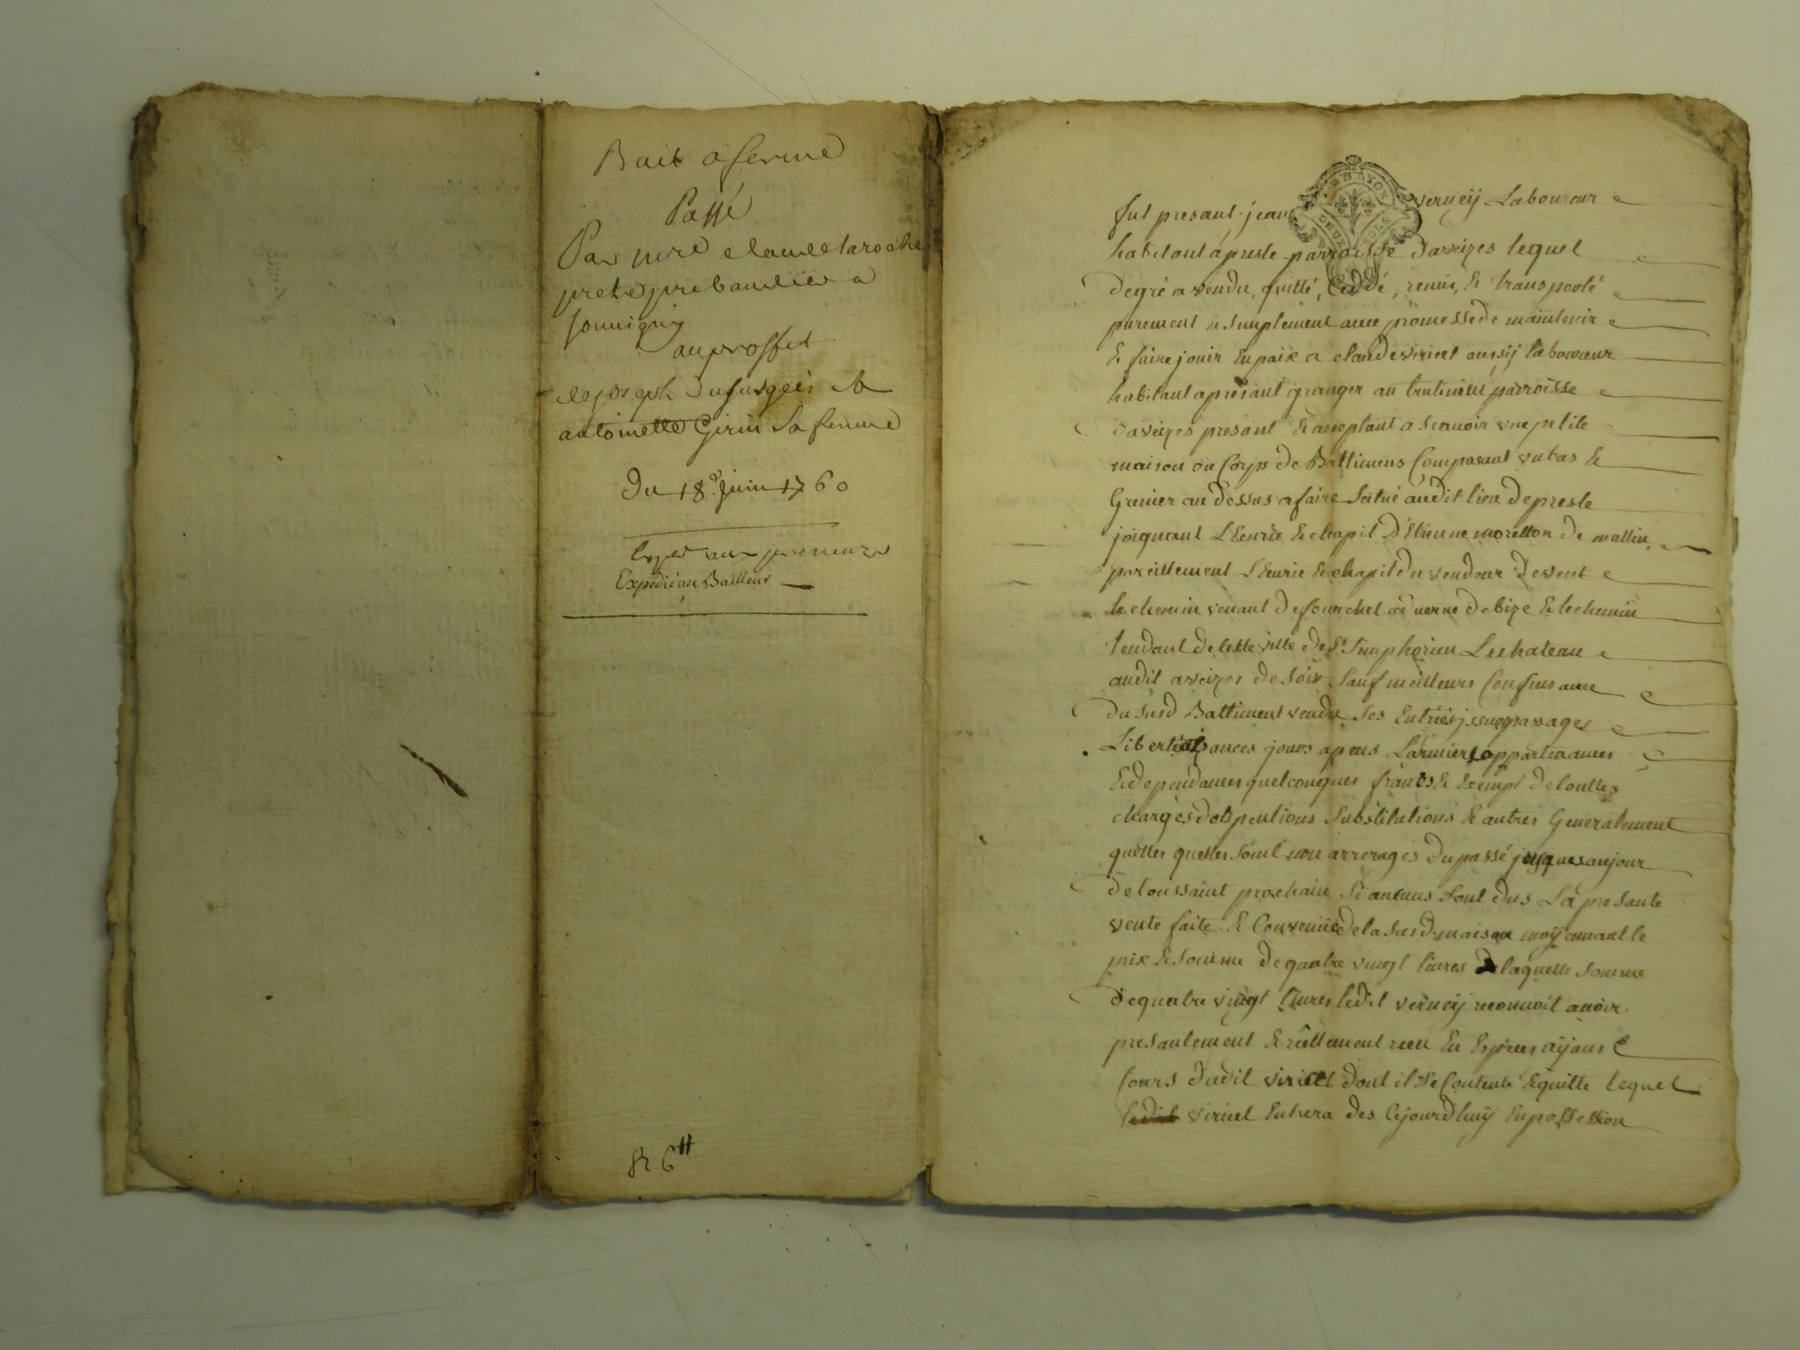 Bail a ferme
Passé
Par mre claude laroche
pretre prebandier a
Souvigny
au proffit
de joseph Dufusgei &
antoinette Girin Sa femme
Du 18e juin 1760
Expedié aux preneurs
Expedié au Bailleur
R 6 ₶
DE LYON
DEUX SOLS
fut presant jean verneÿ Laboureur
habitant a preste parroisse d'aveizes lequel
de gré a vendu, quitté, Ceddé, remis, & transporté
purement & simplement avec promesse de maintenir
& faire jouir En paix a claude viricel aussÿ laboureur
habitant a present granger au parroisse
d'aveizes presant & acceptant a scavoir une petite
maison ou Corps de Battimens Composant un bas &
Grenier au dessus a faire Scitué audit lieu de preste
joignant L'Ecurie & chapit d'Etienne moretton de mattin,
pareillement L'Ecurie & chapit du vendeur de vent
le chemin venant de fourchet a verne de bize & le chemin
tendant de cette ville de St Simphorien Le chateau
audit aveizes de soir Sauf meilleurs Confins avec
du susd Battiment vendu Ses Entrées, issue, passages
Libertés, aisances jours apens Larmiers, appartenances
& dependances quelconques francs & Exempt de touttes
charges dots pentions Substitutions & autres Generalement
quelles quelles soint non arrerages du passé jusques au jour
de toussaint prochain Si aucuns sont dus La presante
vente faite & Convenüe de la susd. maison moÿennant le
prix & somme de quatre vingt livres de laquelle somme
de quatre vingt livres ledit verneÿ reconnoit avoir
presantement & réellement reçu En Especes aÿans
Cours dudit viricel dont il Se Contente & quitte lequel
ledit viricel Entrera des Cejourdhuÿ En possession